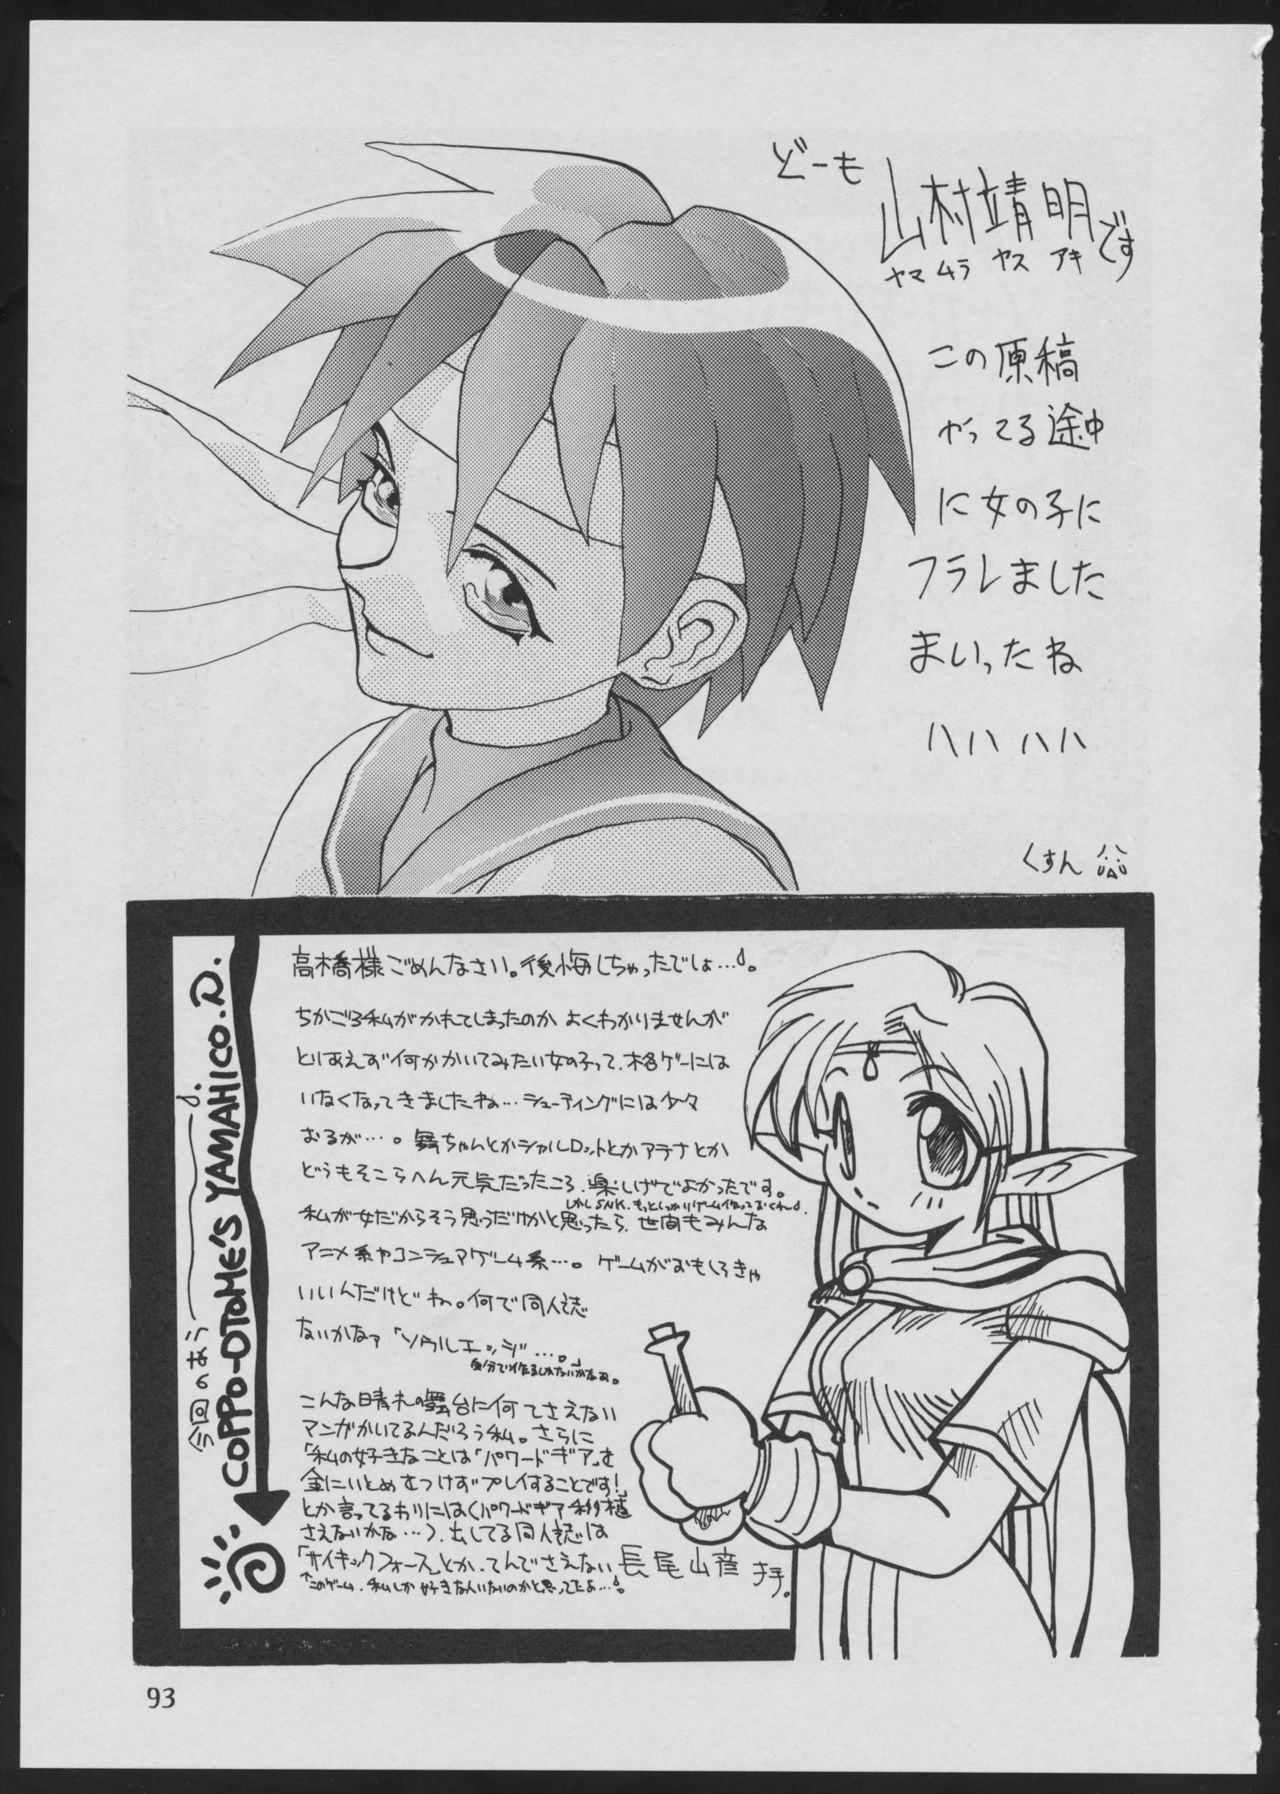 どーも
山村靖明です
ヤマムラ ヤス アキ
この原稿
やってる途中
に女の子に
フラレました
まいったね
ハハハハ
くすん
今回のあう
COPPO-OTOME'S YAMAHICO.D.
高橋様ごめんなさい。後悔しちゃったでしょ…。
ちかごろ私がかれてしまったのか よくわかりませんが
とりあえず何かかいてみたい女の子って、格ゲーには
いなくなってきましたね…シューティングには少々
おるが…。舞ちゃんとかシャルロットとかアテナとか
どうもそこらへん元気だったころ、楽しげでよかったです。
しかしSNK、もっとしっかりゲーム作っておくれ
私が女だからそう思うだけかと思ったら、世間もみんな
アニメ系やコンシュアゲーム系…。ゲームがおもしろきゃ
いいんだけどね。何で同人誌
ないかなァ「ソウルエッジ」…。
自分で作るしかないかなぁ。
こんな晴れの舞台に何てさえない
マンガかいてるんだろう私。さらに
「私の好きなことは「パワードギア」を
金にいとめをつけずプレイすることです!」
とか言ってるわりには(パワードギア移植
さえないかな…)、出してる同人誌は
「サイキックフォース」とか、てんでさえない長尾山彦拝。
このゲーム、私しか好きな人いないのかと思ってたよ…!
93